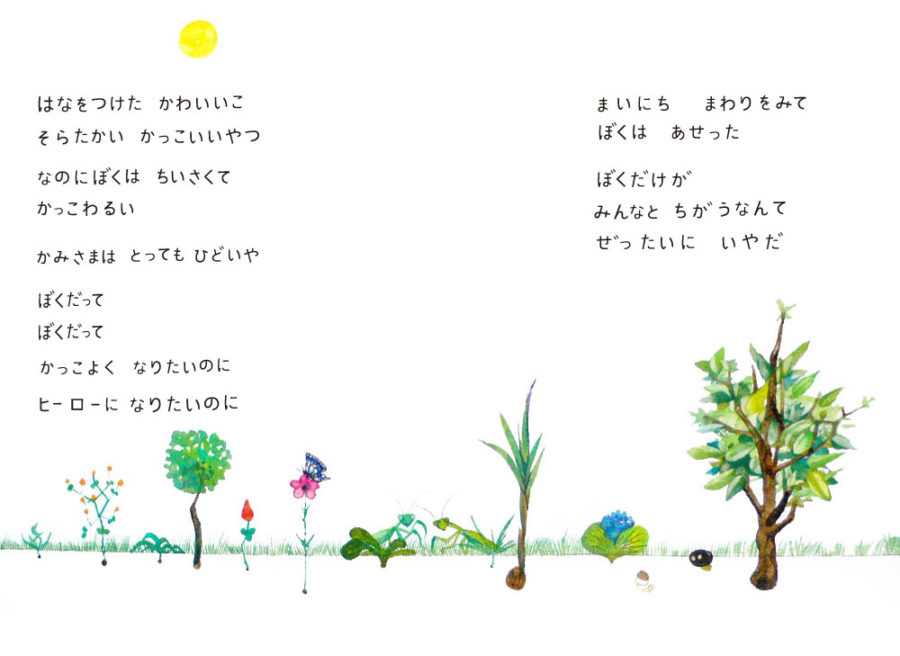 はなをつけた かわいいこ
そらたかい かっこいいやつ
なのにぼくは ちいさくて
かっこわるい
かみさまは とっても ひどいや
ぼくだって
ぼくだって
かっこよく なりたいのに
ヒーローに なりたいのに
まいにち まわりをみて
ぼくは あせった
ぼくだけが
みんなと ちがうなんて
ぜったいに いやだ